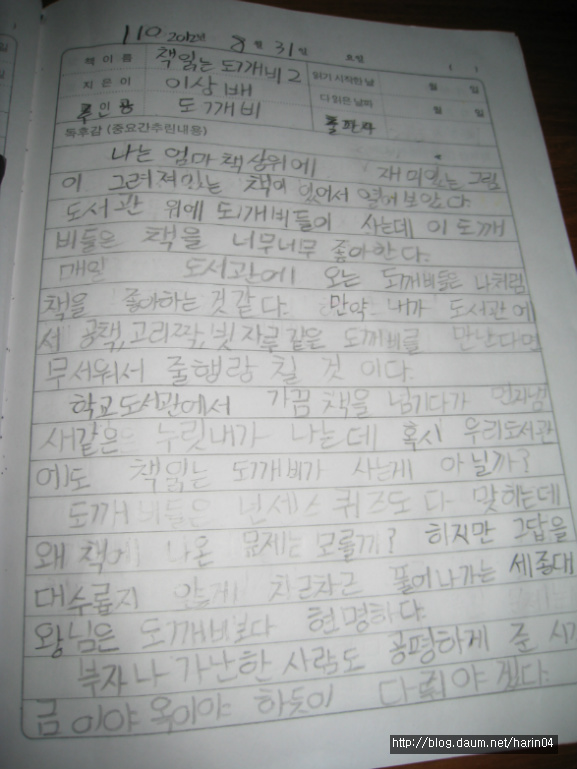 110 2012년 8월 31일 요일
책 이 름 책읽는 도깨비 2 읽기 시작한 날 월 일
지 은 이 이상배 다 읽은 날짜 월 일
주인공 도깨비 출판사
독후감 (중요간추린내용)
나는 엄마 책상위에 재미있는 그림
이 그려져있는 책이 있어서 열어보았다
도서관 위에 도깨비들이 사는데 이 도깨
비들은 책을 너무너무 좋아한다.
매일 도서관에 오는 도깨비들은 나처럼
책을 좋아하는 것 같다. 만약 내가 도서관에
서 공책, 고리짝, 빗자루같은 도깨비를 만난다면
무서워서 줄행랑 칠 것 이다.
학교도서관에서 가끔 책을 넘기다가
새같은 누릿내가 나는데 혹시 우리도서관
에도 책읽는 도깨비가 사는게 아닐까?
도깨비들은 넌센스 퀴즈도 다 맞히는데
왜 책에 나온 문제는 모를까? 하지만 그답을
대수롭지 않게 차근차근 풀어나가는 세종대
왕님은 도깨비보다 현명하다.
부자나 가난한 사람도 공평하게 준 시
금이야 옥이야 하듯이 다뤄야 겠다.
http://blog.daum.net/harin04